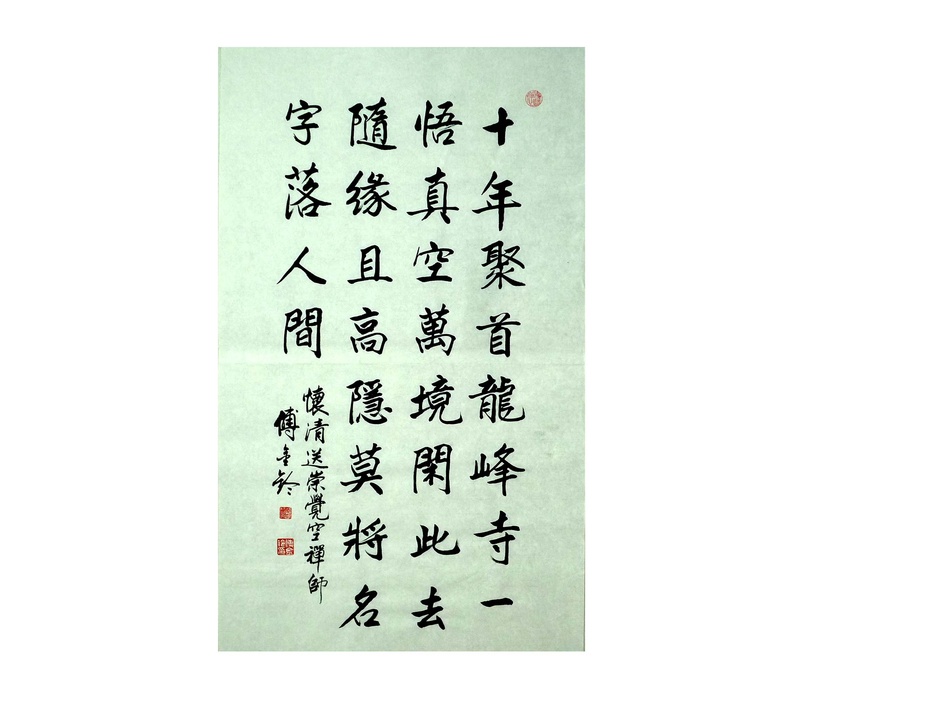 十年聚首龍峰寺一
悟真空萬境閑此去
隨緣且高隱莫將名
字落人間
懷清送崇覺空禪師
傅金鈴